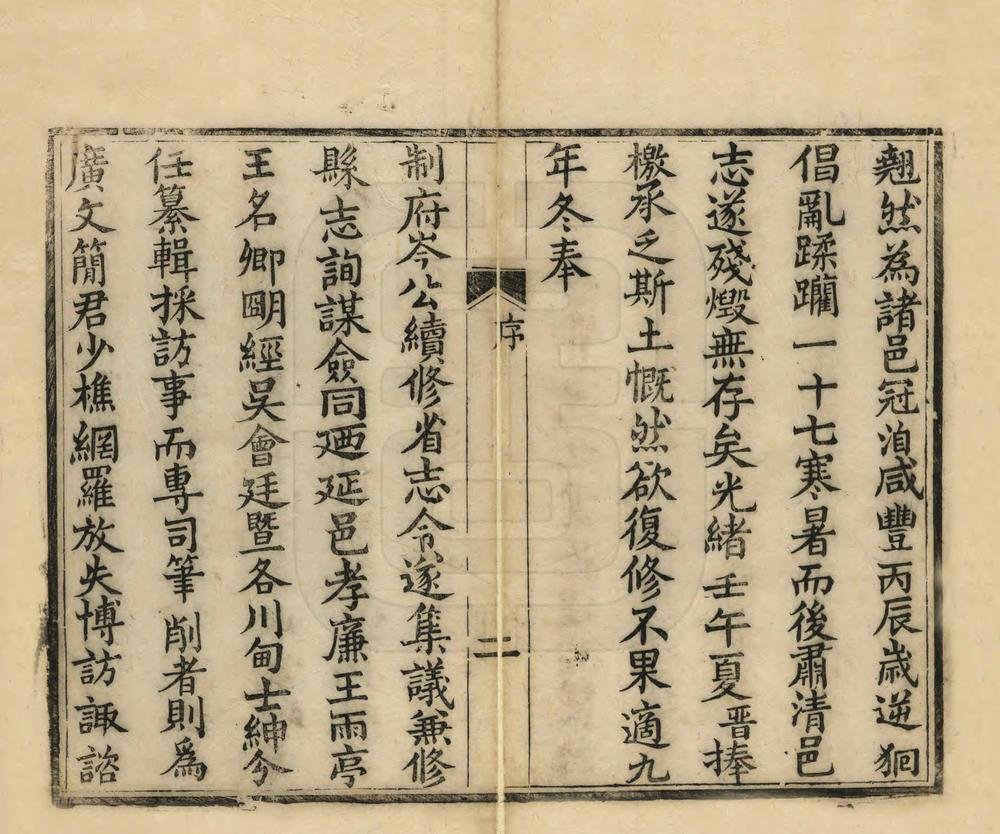 翹然為諸邑冠洎咸豐丙辰歲逆狪
倡亂蹂躪一十七寒暑而後肅清邑
志遂殘燬無存矣光緒壬午夏晋捧
檄承乏斯土慨然欲復修不果適九
年冬奉
序
二
制府岑公續修省志令遂集議兼修
縣志詢謀僉同廼延邑孝廉王雨亭
王名卿明經吳會廷暨各川甸士紳分
任纂輯採訪事而專司筆削者則爲
廣文簡君少樵網羅放失博訪諏諮